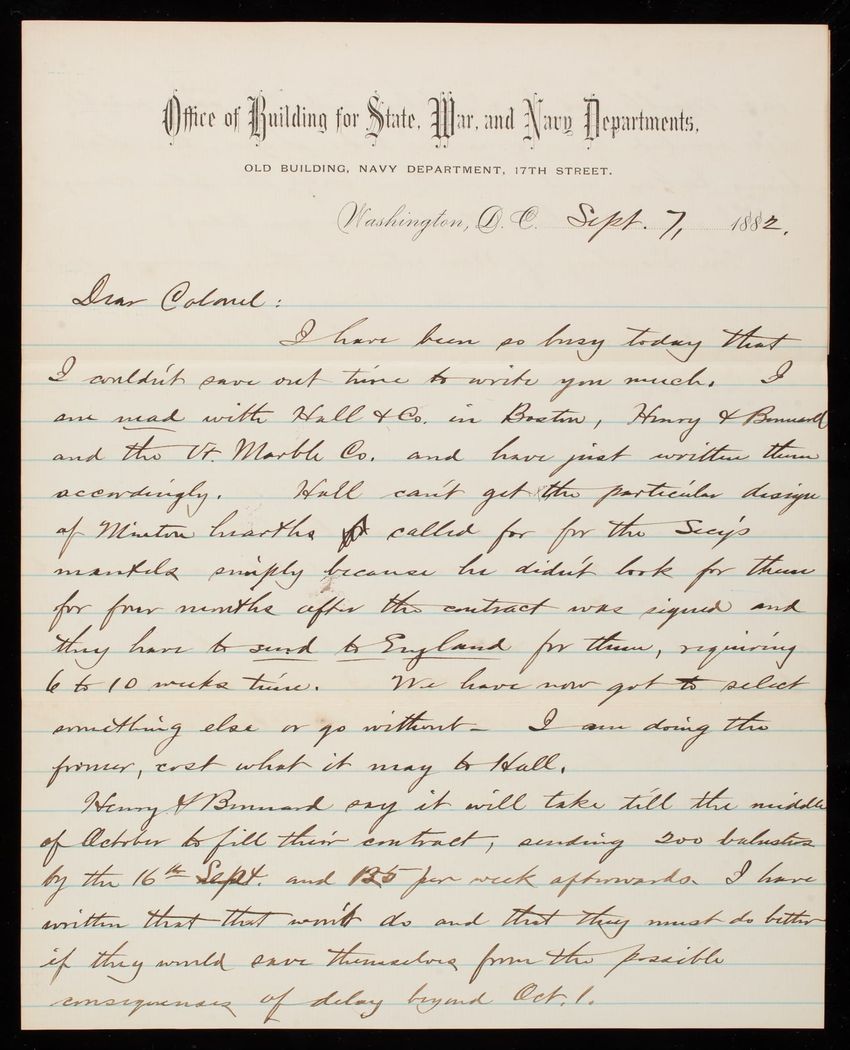 Office of Building for State, War, and Navy Departments,
OLD BUILDING, NAVY DEPARTMENT, 17TH STREET.
Washington, D. C. Sept. 7, 1882.
Dear Colonel:
I have been so busy today that
I couldn't save out time to write you much. I
am mad with Hall & Co. in Boston, Henry & Bonnard
and the Vt. Marble Co. and have just written them
accordingly. Hall can't get the particular design
of Minton hearths called for for the Secy's
mantels simply because he didn't look for them
for four months after the contract was signed and
they have to send to England for them, requiring
6 to 10 weeks time. We have now got to select
something else or go without - I am doing the
former, cost what it may to Hall.
Henry & Bonnard say it will take till the middle
of October to fill their contract, sending 200 balusters
by the 16th Sept. and 125 per week afterwards. I have
written that that won't do and that they must do better
if they would save themselves from the possible
consequenses of delay beyond Oct. 1.